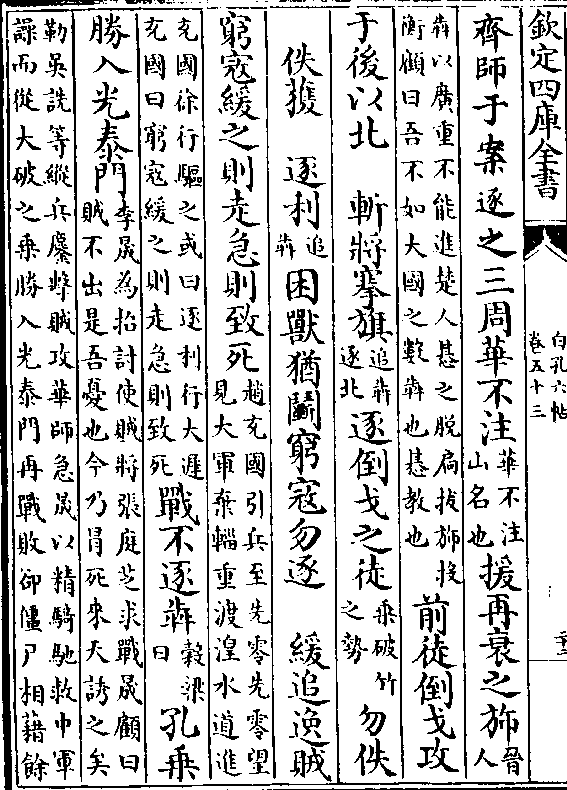 欽定四庫全書
白孔六帖
卷五十三
齊師于案逐之三周華不注華不注山名也援再衰之斾晉人
犇以廣重不能進楚人惎之脱扃拔斾投
衡顧曰吾不如大國之數犇也惎教也
前徒倒戈攻
于後以北　斬將搴旗追犇逐北逐倒戈之徒乘破竹之勢勿佚
佚獲　逐利追犇困獸猶鬭窮寇勿逐　緩追逸賊
窮寇緩之則走急則致死
趙充國引兵至先零先零望
見大軍棄輜重渡湟水道進
充國徐行驅之或曰逐利行大遲
充國曰窮寇緩之則走急則致死
戰不逐犇穀梁曰　孔乘
勝入光泰門
李晟為招討使賊將張庭芝求戰晟顧曰
賊不出是吾憂也今乃冒死來天誘之矣
勒吳詵等縱兵鏖擊賊攻華師急晟以精騎馳救中軍
譟而從大破之乘勝入光泰門再戰敗卻僵尸相藉餘